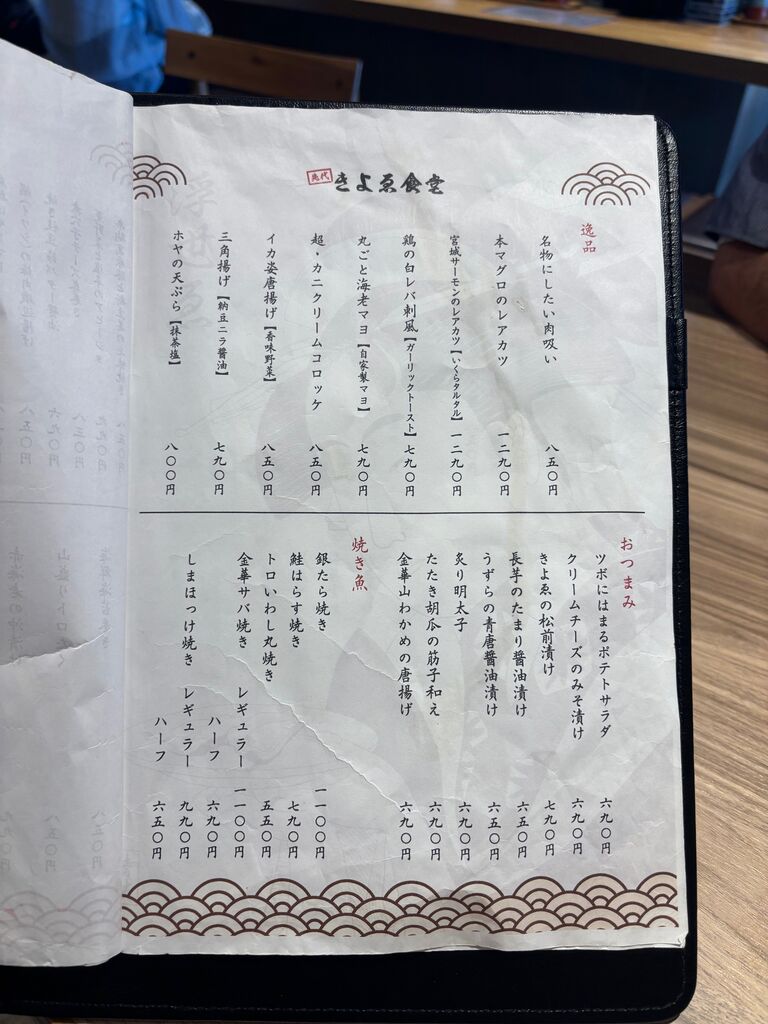 きよゑ食堂
逸品
名物にしたい肉吸い 八五〇円
本マグロのレアカツ 一二九〇円
宮城サーモンのレアカツ【いくらタルタル】 一二九〇円
鶏の白レバ刺風【ガーリックトースト】 七九〇円
丸ごと海老マヨ【自家製マヨ】 七九〇円
超・カニクリームコロッケ 八五〇円
イカ姿唐揚げ【香味野菜】 八五〇円
三角揚げ【納豆ニラ醤油】 七九〇円
ホヤの天ぷら【抹茶塩】 八〇〇円
おつまみ
ツボにはまるポテトサラダ 六九〇円
クリームチーズのみそ漬け 六九〇円
きよゑの松前漬け 七九〇円
長芋のたまり醤油漬け 六五〇円
うずらの青唐醤油漬け 六五〇円
炙り明太子 六九〇円
たたき胡瓜の筋子和え 六九〇円
金華山わかめの唐揚げ 六九〇円
焼き魚
銀たら焼き 一一〇〇円
鮭はらす焼き 七九〇円
トロいわし丸焼き 五五〇円
金華サバ焼き レギュラー 一一〇〇円
ハーフ 六九〇円
しまほっけ焼き レギュラー 九九〇円
ハーフ 六五〇円